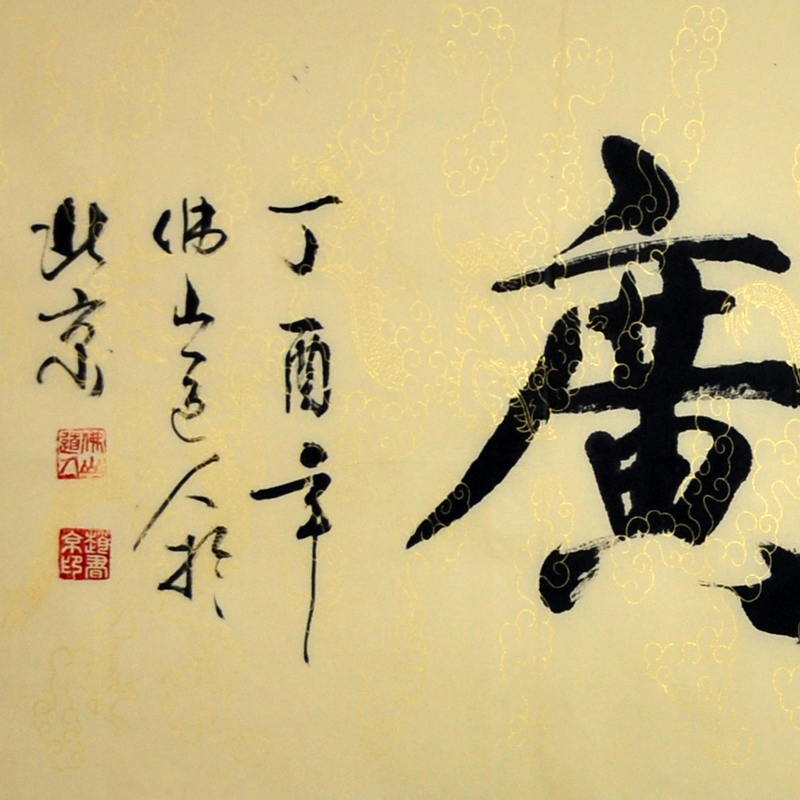 廣
丁酉年
佛山道人於
北京
佛山道人
趙書京印